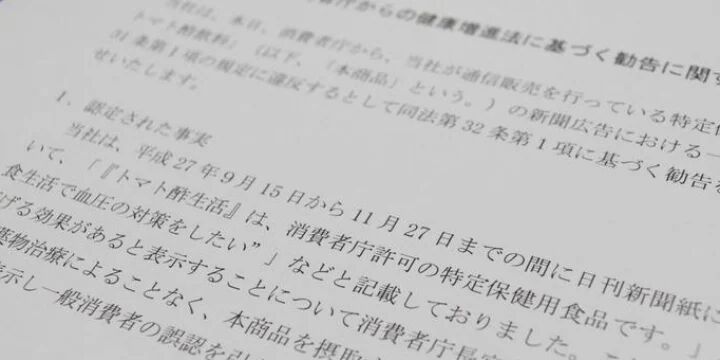 者庁からの健康増進法に基づく勧告に関す
当社は、本日、消費者庁から、当社が通信販売を行っている特定保
トマト酢飲料」（以下、「本商品」という。）の新聞広告における一
31条第1項の規定に違反するとして同法第32条第1項に基づく勧告を
せいたします。
1．認定された事実
当社は、平成27年9月15日から11月27日までの間に日刊新聞紙に
いて、「『トマト酢生活』は、消費者庁許可の特定保健用食品です。」
食生活で血圧の対策をしたい”」などと記載しておりました。
げる効果があると表示することについて消費者庁長官
薬物治療によることなく、本商品を摂取
表示し一般消費者の誤認を引